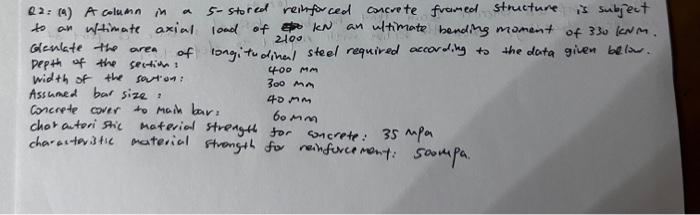 Q2: (a) A column in a 5-stored reinforced concrete framed structure is subject
to an ultimate axial load of 2100 kN an ultimate bending moment of 330 kNm.
Calculate the area of longitudinal steel required according to the data given below.
Depth of the section: 400 mm
width of the section: 300 mm
Assumed bar size: 40 mm
Concrete cover to main bar: 60 mm
charactoristic material strength for concrete: 35 Mpa
characteristic material strength for reinforcement: 500mpa.